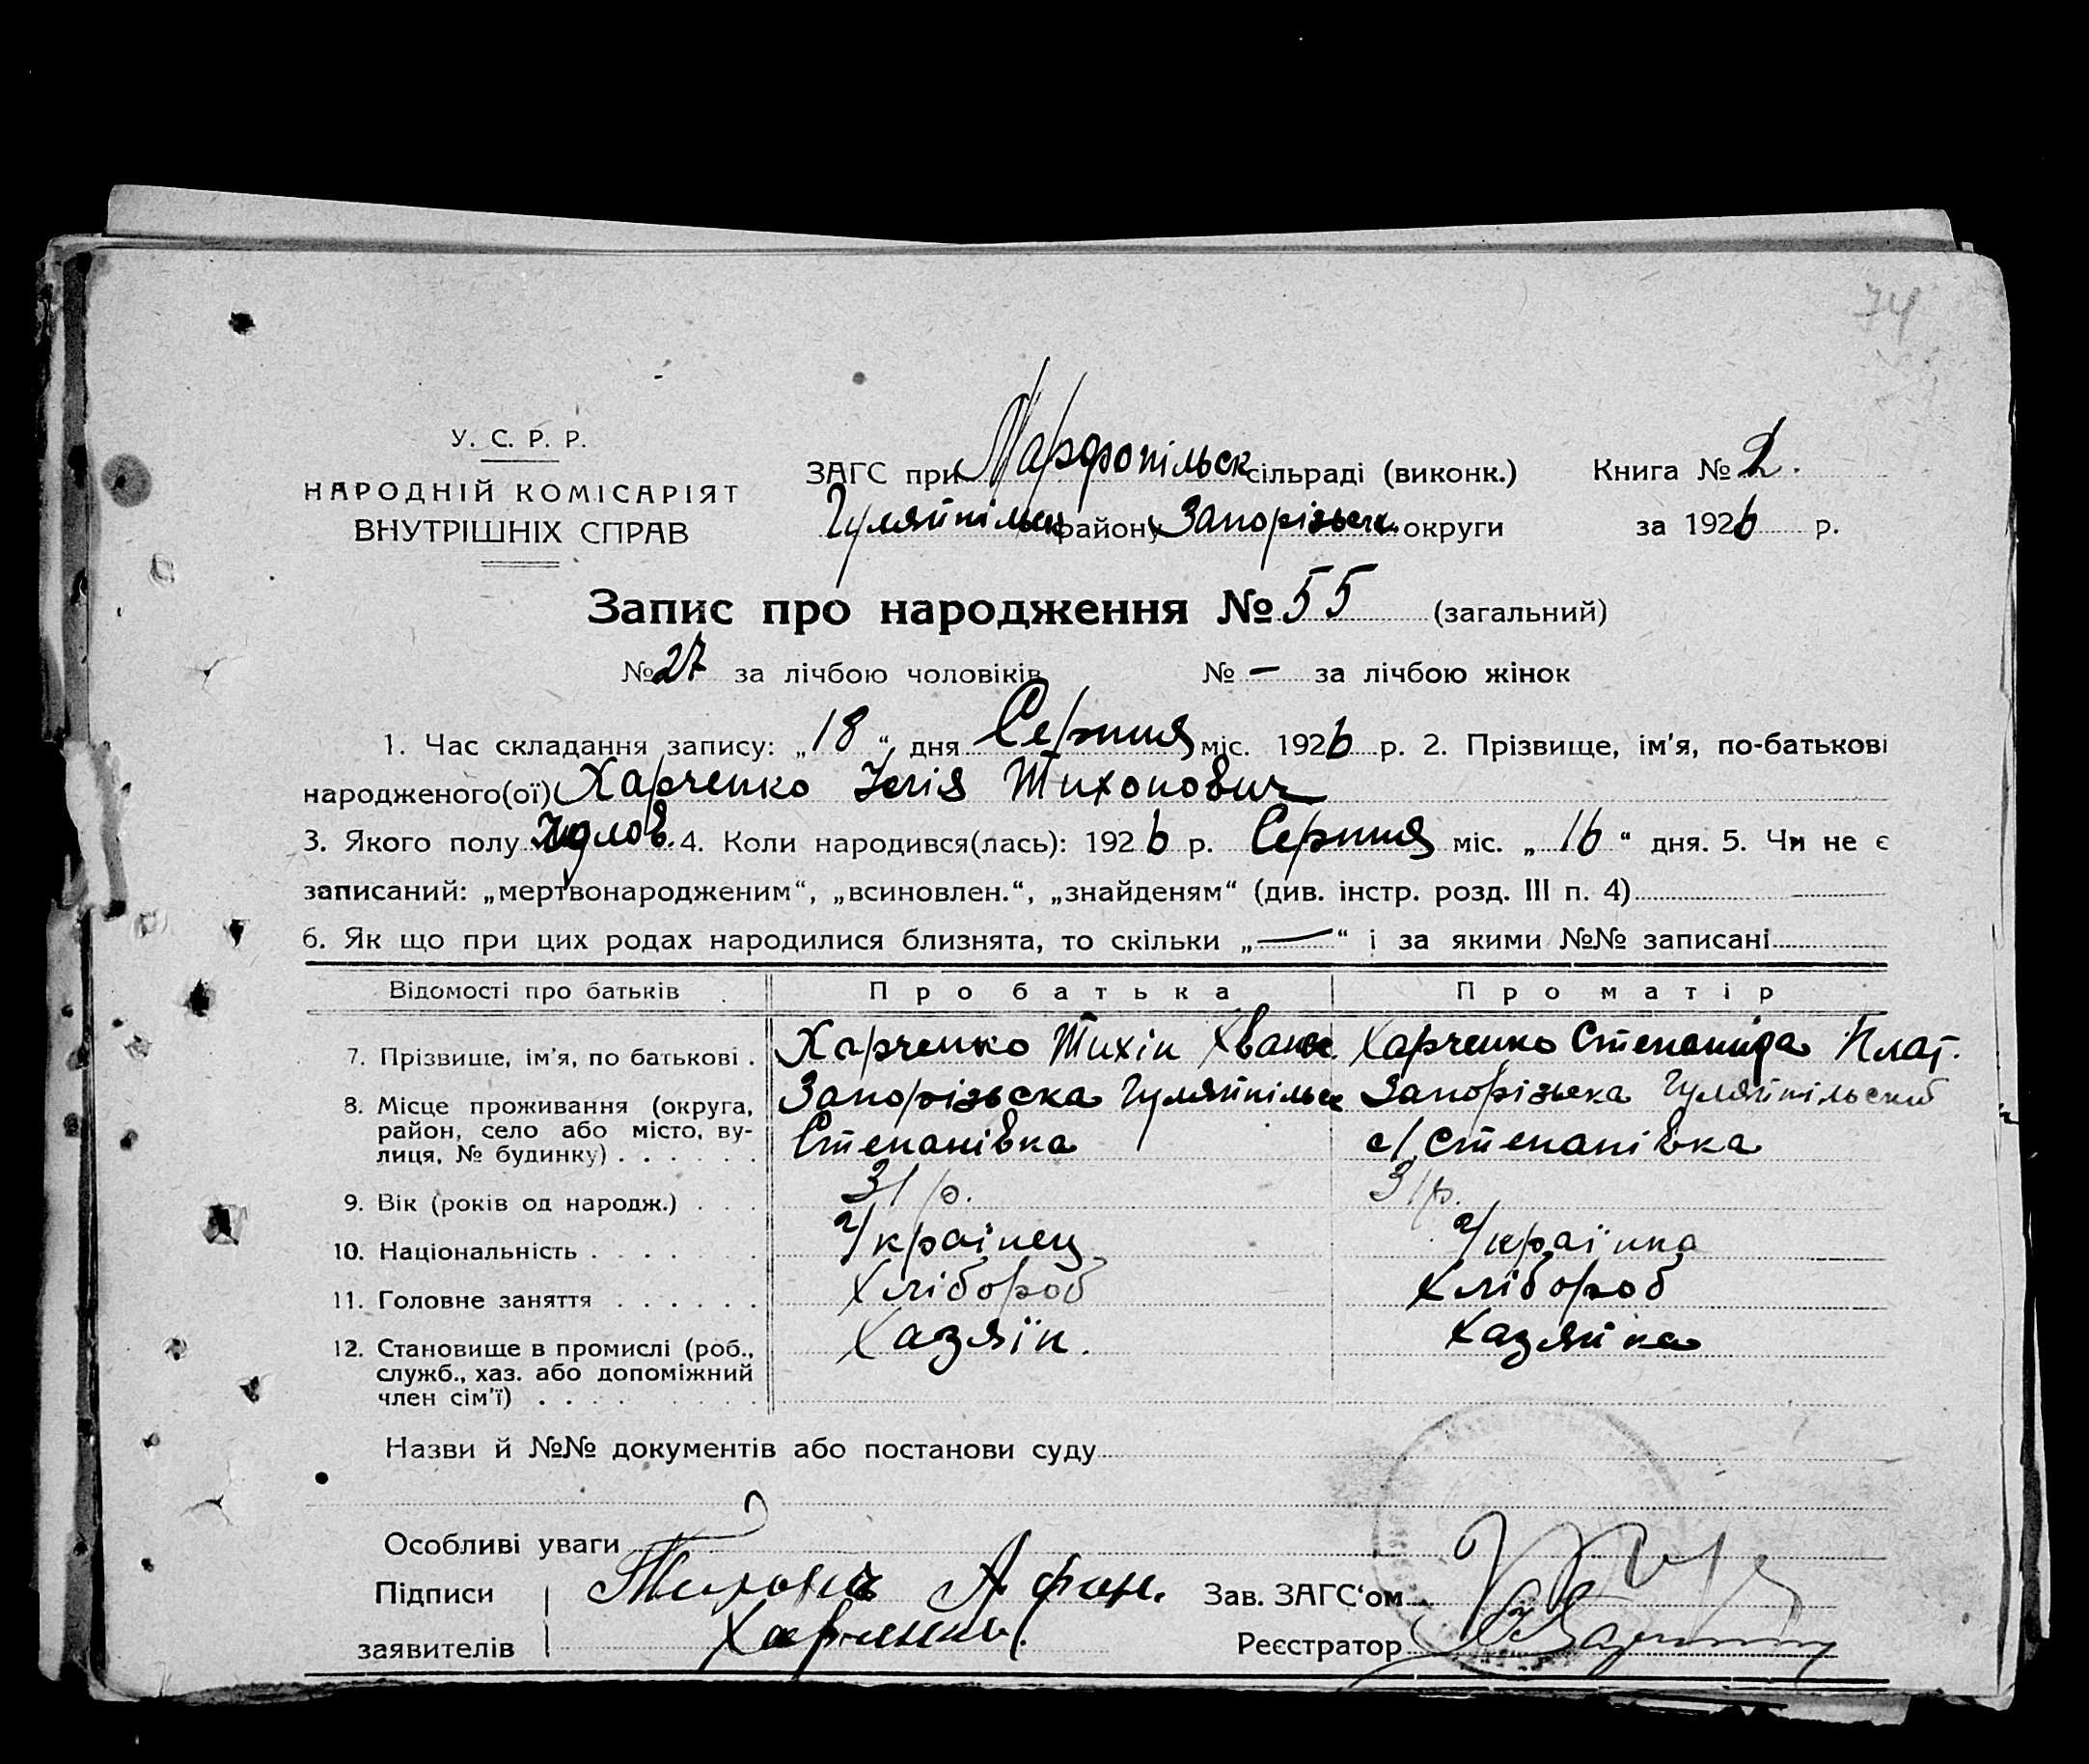 74
У. С. Р. Р.
НАРОДНІЙ КОМІСАРІЯТ
ВНУТРІШНІХ СПРАВ
ЗАГС при Марфопільск сільраді (виконк.)
Гуляйпільск району Запорізьк. округи
Книга № 2.
за 1926 р.
Запис про народження № 55 (загальний)
№ 27 за лічбою чоловіків № — за лічбою жінок
1. Час складання запису: „18“ дня Серпня міс. 1926 р. 2. Прізвище, ім'я, по-батькові
народженого(ої) Харченко Ілія Тихонович
3. Якого полу 4. Коли народився(лась): 1926 р. Серпня міс. „16“ дня. 5. Чи не є
записаний: „мертвонародженим“, „всиновлен.“, „знайденям“ (див. інстр. розд. III п. 4)
6. Як що при цих родах народилися близнята, то скільки „—“ і за якими №№ записані
Відомості про батьків Про батька Про матір
7. Прізвище, ім'я, по батькові . Харченко Тихін Хванас. Харченко Степанида Плат.
8. Місце проживання (округа, Запорізьска Гуляйпільск Запорізька Гуляйпільский
район, село або місто, ву- Степанівка с/Степанівка
лиця, № будинку)
9. Вік (років од народж.) 31 р. 31 р.
10. Національність Українец Українка
11. Головне заняття Хлібороб Хлібороб
12. Становище в промислі (роб., Хазяїн. Хазяйка
служб., хаз. або допоміжний
член сім'ї)
Назви й №№ документів або постанови суду
Особливі уваги
Підписи Тихонъ Афан. Зав. ЗАГС'ом
заявителів Харченко. Реєстратор